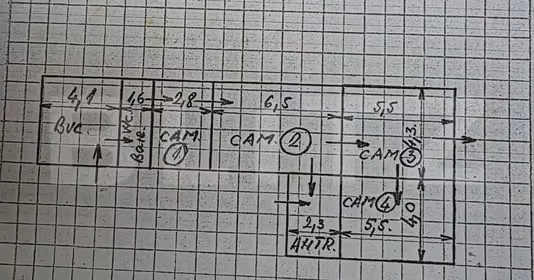 4,1 1,6 2,8 6,5 5,5
Buc. WC. CAM. ① CAM. ② CAM ③ 4,3.
CAM ④
2,3 5,5. 4,0
AHTR.